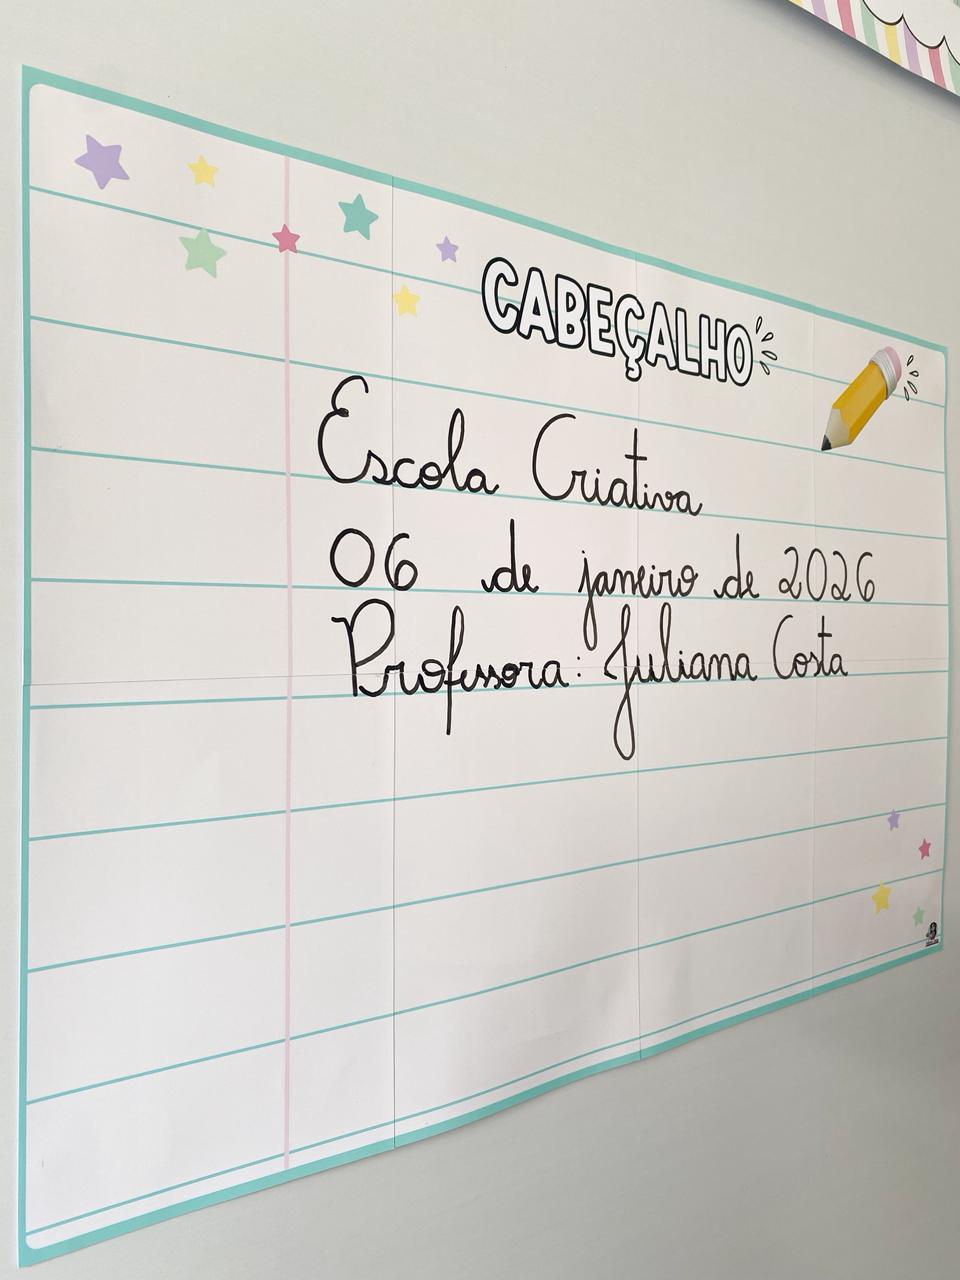 CABEÇALHO
Escola Criativa
06 de janeiro de 2026
Professora: Juliana Costa